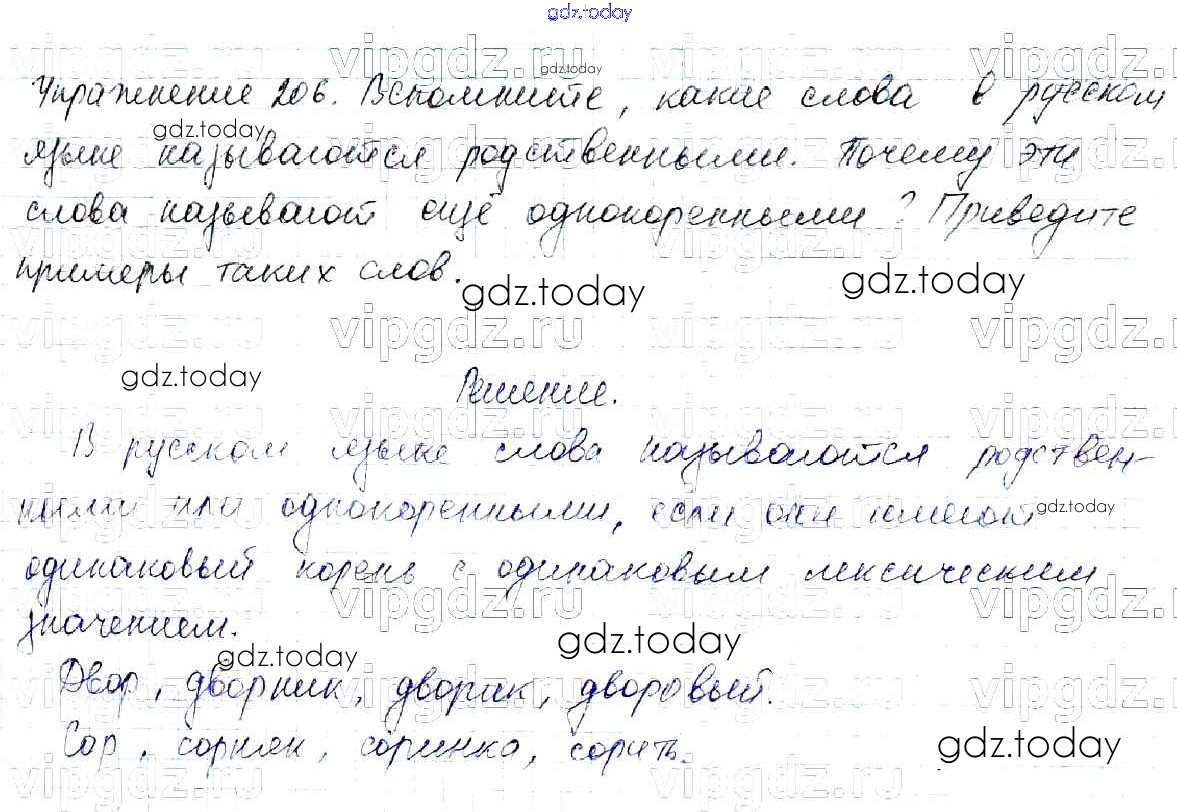 gdz.today
Упражнение 206. Вспомните, какие слова в русском
языке называются родственными. Почему эти
слова называют ещё однокоренными? Приведите
примеры таких слов.
Решение.
В русском языке слова называются родствен-
ными или однокоренными, если они имеют
одинаковый корень с одинаковым лексическим
значением.
Двор, дворник, дворик, дворовый.
Сор, сорняк, соринка, сорить.
vipgdz.ru
gdz.today